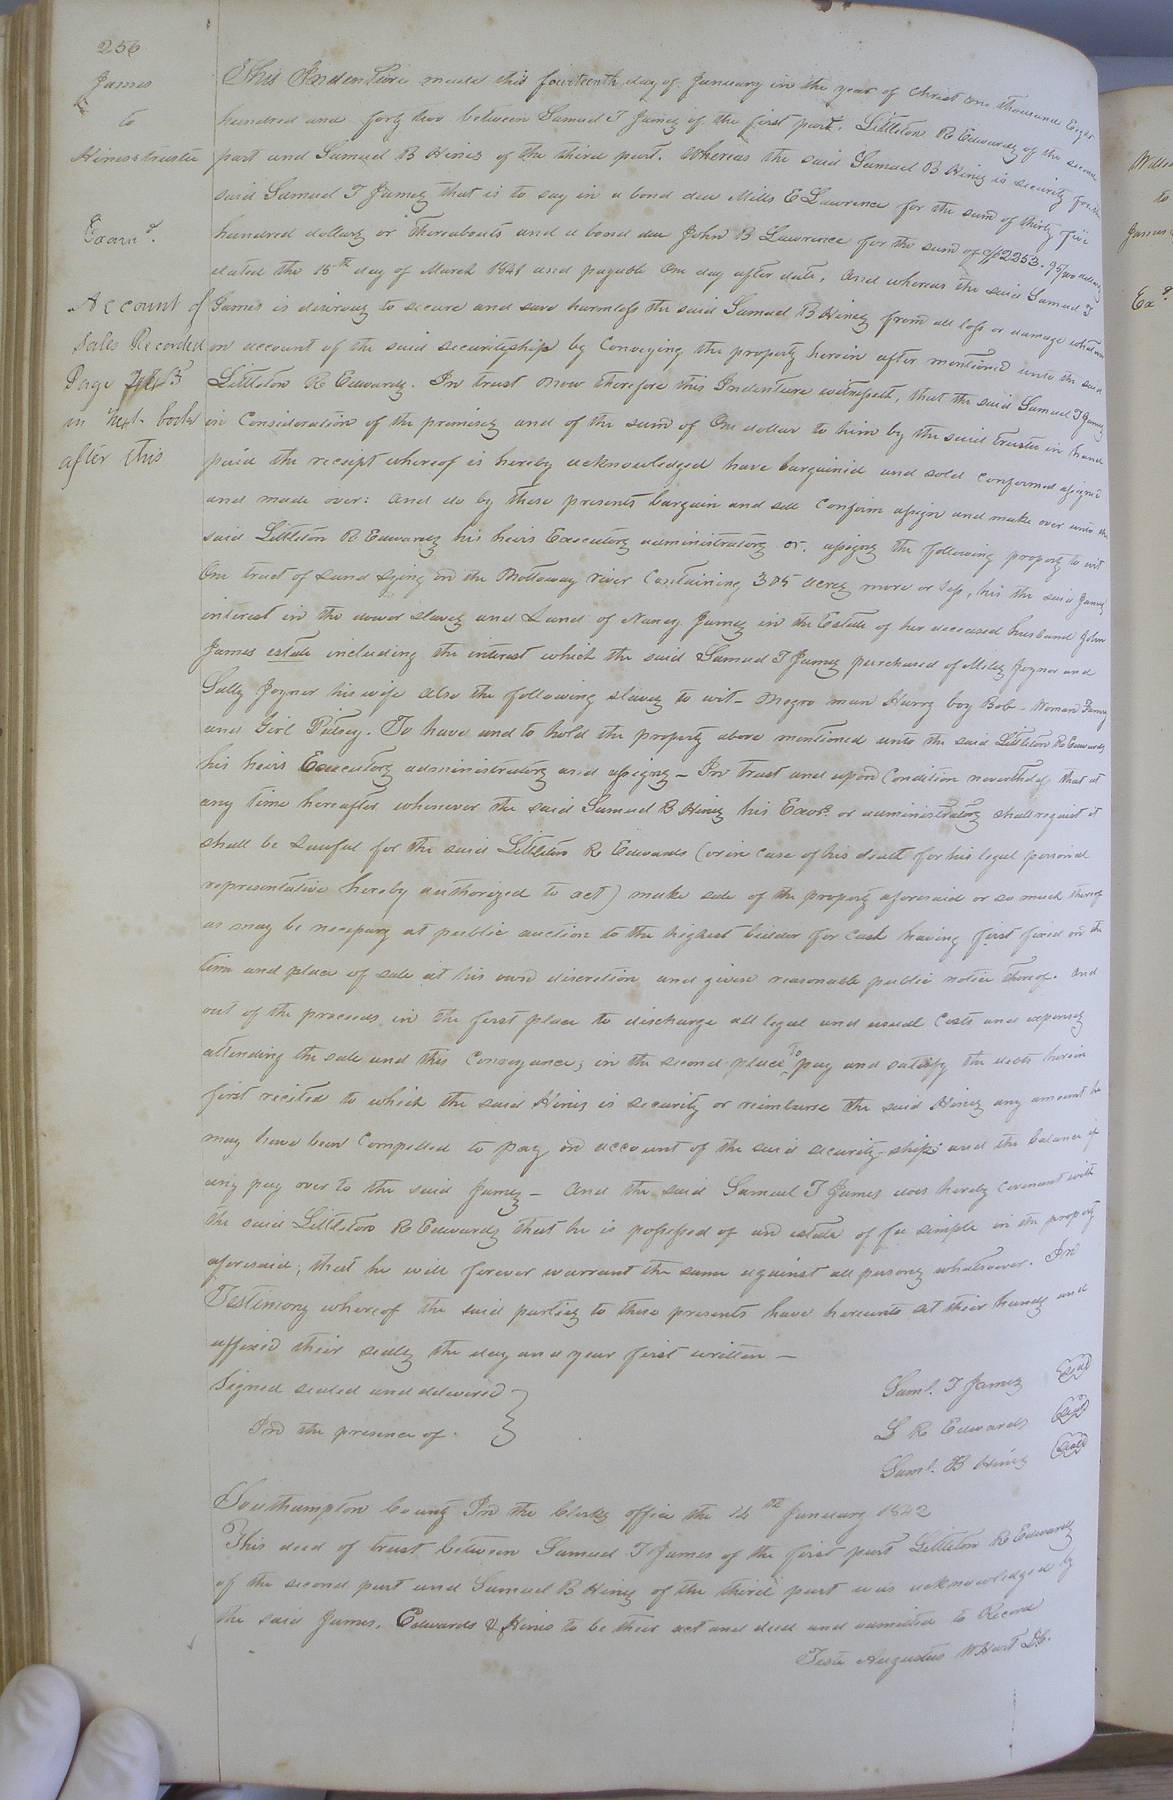 256
James
to
Hines & trustee
Exam.d
Account of
Sales Recorded
Page
in next book
after this
This Indenture made this fourteenth day of January in the year of Christ one thousand Eight
hundred and forty two between Samuel T James of the first part, Littleton R Edwards of the second
part and Samuel B Hines of the third part. Whereas the said Samuel B Hines is security for the
said Samuel T James that is to say in a bond due Mills E Lawrence for the sum of thirty five
hundred dollars or thereabouts and a bond due John B Lawrence for the sum of $2253.95/100 dollars
dated the 15th day of March 1841 and payable One day after date, And whereas the said Samuel T
James is desirous to secure and save harmless the said Samuel B Hines from all loss or damage whatever
on account of the said securityship by Conveying the property herein after mentioned unto the said
Littleton R Edwards. In trust Now therefore this Indenture witnesseth, that the said Samuel T James
in Consideration of the premises and of the sum of One dollar to him by the said trustee in hand
paid the receipt whereof is hereby acknowledged have bargained and sold confirmed assigned
and made over: and do by these presents bargain and sell confirm assign and make over unto the
said Littleton R Edwards his heirs Executors administrators or assigns the following property to wit
One tract of Land Lying on the Nottoway river Containing 305 acres more or less, his the said James
interest in the dower slaves and Land of Nancy James in the Estate of her deceased husband John
James estate including the interest which the said Samuel T James purchased of Miles Joyner and
Sally Joyner his wife also the following slaves to wit - Negro man Harry boy Bob - Woman Fanny
and Girl Patsey. To have and to hold the property above mentioned unto the said Littleton R Edwards
his heirs Executors administrators and assigns - In trust and upon Condition nevertheless that at
any time hereafter whenever the said Samuel B Hines his Exors. or administrators shall require it
shall be Lawful for the said Littleton R Edwards (or in case of his death for his legal personal
representative hereby authorized to act) make sale of the property aforesaid or so much thereof
as may be necessary at public auction to the highest bidder for cash having first fixed on the
time and place of sale at his own discretion and given reasonable public notice thereof. And
out of the proceeds in the first place to discharge all legal and usual Costs and expenses
attending the sale and this Conveyance; in the second place to pay and satisfy the debts herein
first recited to which the said Hines is security or reimburse the said Hines any amount he
may have been Compelled to pay on account of the said security-ship: and the balance if
any pay over to the said James - And the said Samuel T James does hereby Covenant with
the said Littleton R Edwards that he is possessed of an estate of fee simple in the property
aforesaid; that he will forever warrant the same against all persons whatsoever. In
Testimony whereof the said parties to these presents have hereunto set their hands and
affixed their seals the day and year first written -
Signed sealed and delivered
In the presence of.
Saml. T James Seal
L R Edwards Seal
Saml. B Hines Seal
Southampton County In the Clerks office the 14th January 1842
This deed of trust between Samuel T James of the first part Littleton R Edwards
of the second part and Samuel B Hines of the third part was acknowledged by
the said James, Edwards & Hines to be their act and deed and admitted to Record
Teste Augustus W Hart D.C.
to
James
Ex.d